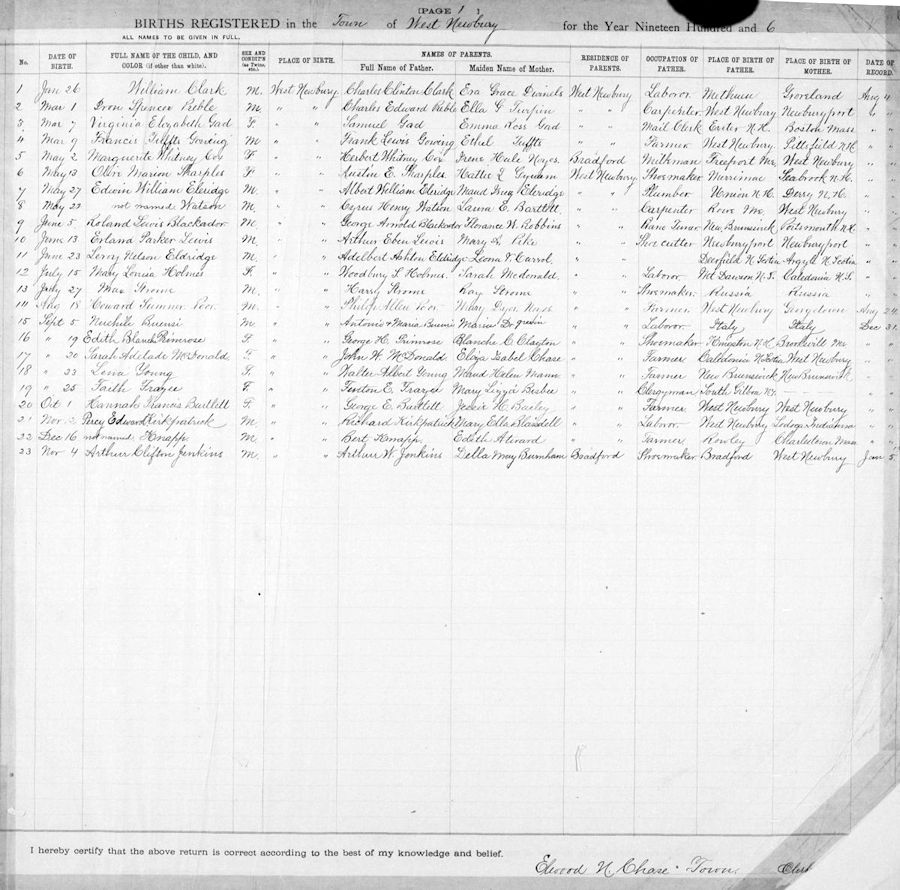 [PAGE 1 ]
BIRTHS REGISTERED in the Town of West Newbury for the Year Nineteen Hundred and 6
ALL NAMES TO BE GIVEN IN FULL.
No. DATE OF BIRTH. FULL NAME OF THE CHILD, AND COLOR (if other than white). SEX AND CONDIT'N (as Twins, etc.) PLACE OF BIRTH. NAMES OF PARENTS. Full Name of Father. Maiden Name of Mother. RESIDENCE OF PARENTS. OCCUPATION OF FATHER. PLACE OF BIRTH OF FATHER. PLACE OF BIRTH OF MOTHER. DATE OF RECORD.
1 Jan 26 William Clark M. West Newbury Charles Clinton Clark Eva Grace Daniels West Newbury Laboror Methuen Groveland Aug 4
2 Mar 1 Spencer M. " " Charles Edward Ella G " " Carpenter West Newbury Newburyport " "
3 Mar 7 Virginia Elizabeth Gad F. " " Samuel Gad Emma Ross Gad " " Mail Clerk Exeter N.H. Boston Mass " "
4 Mar 9 Francis Tuffts Gowing M " " Frank Lewis Gowing Ethel Tuffts " " Farmer West Newbury Pittsfield N.H. " "
5 May 2 Marguerite Whitney Cox F " " Herbert Whitney Cox Irene Hale Noyes Bradford Milkman Freeport Me. West Newbury " "
6 May 13 Olin Marion Sharples F " " Austin E. Sharples Hattie L West Newbury Shoemaker Merrimac Seabrook N.H. " "
7 May 27 Edwin William Eldridge M. " " Albert William Eldridge Maud Eldridge " " Plumber Union N.H. Derry N.H. " "
8 May 22 not named Watson M. " " Cyrus Henry Watson Laura E. Bartlett " " Carpenter Rowe West Newbury " "
9 June 5 Roland Lewis Blackador M. " " George Arnold Blackador Florance W. Robbins " " New Brunswick Portsmouth N.H. " "
10 June 13 Erland Parker Lewis M. " " Arthur Eben Lewis Mary L. Pike " " Shoe cutter Newburyport Newburyport " "
11 June 23 Leroy Nelson Eldridge M. " " Adelbert Ashton Eldridge Leona V Carrol " " Deerfield N Scotia Argyle N Scotia " "
12 July 15 Mary Louisa Holmes F. " " Woodbury S. Holmes Sarah McDonald " " Laboror Caledonia N.S. " "
13 July 27 Max Strome M. " " Harry Strome Ray Strome " " Shoemaker Russia Russia " "
14 Aug 18 Howard Sumner Poor M. " " Philip Allen Poor Mary " " Farmer West Newbury Georgetown Aug 24
15 Sept 5 M. " " Antonio " " Laboror Italy Italy Dec 31
16 " 19 Edith Blanch Primrose F. " " George H. Primrose Blanche C. Clayton " " Shoemaker Kingston N.H. " "
17 " 20 Sarah Adelade McDonald F. " " John W. McDonald Eliza Isabel Chase " " Farmer Caledonia N Scotia West Newbury " "
18 " 23 Lena Young F. " " Walter Albert Young Maud Helen " " Farmer New Brunswick New Brunswick " "
19 " 25 Faith Frazee F. " " E. Frazee Mary Lizzie Besbee " " Clergyman South " "
20 Oct 1 Hannah Francis Bartlett F. " " George E. Bartlett Jessie H. Bailey " " Farmer West Newbury West Newbury " "
21 Nov 2 Percy Edward Kirkpatrick M. " " Richard Kirkpatrick Mary Ella Blaisdell " " Laboror West Newbury Indianna " "
22 Dec 16 not named Knapp M. " " Bert Knapp Edith Atward " " Farmer Rowley Charlestown Mass " "
23 Nov 4 Arthur Clifton Jenkins M. " " Arthur W. Jenkins Della May Burnham Bradford Shoemaker Bradford West Newbury Jan 5
I hereby certify that the above return is correct according to the best of my knowledge and belief.
Elwood N. Chase Town Clerk